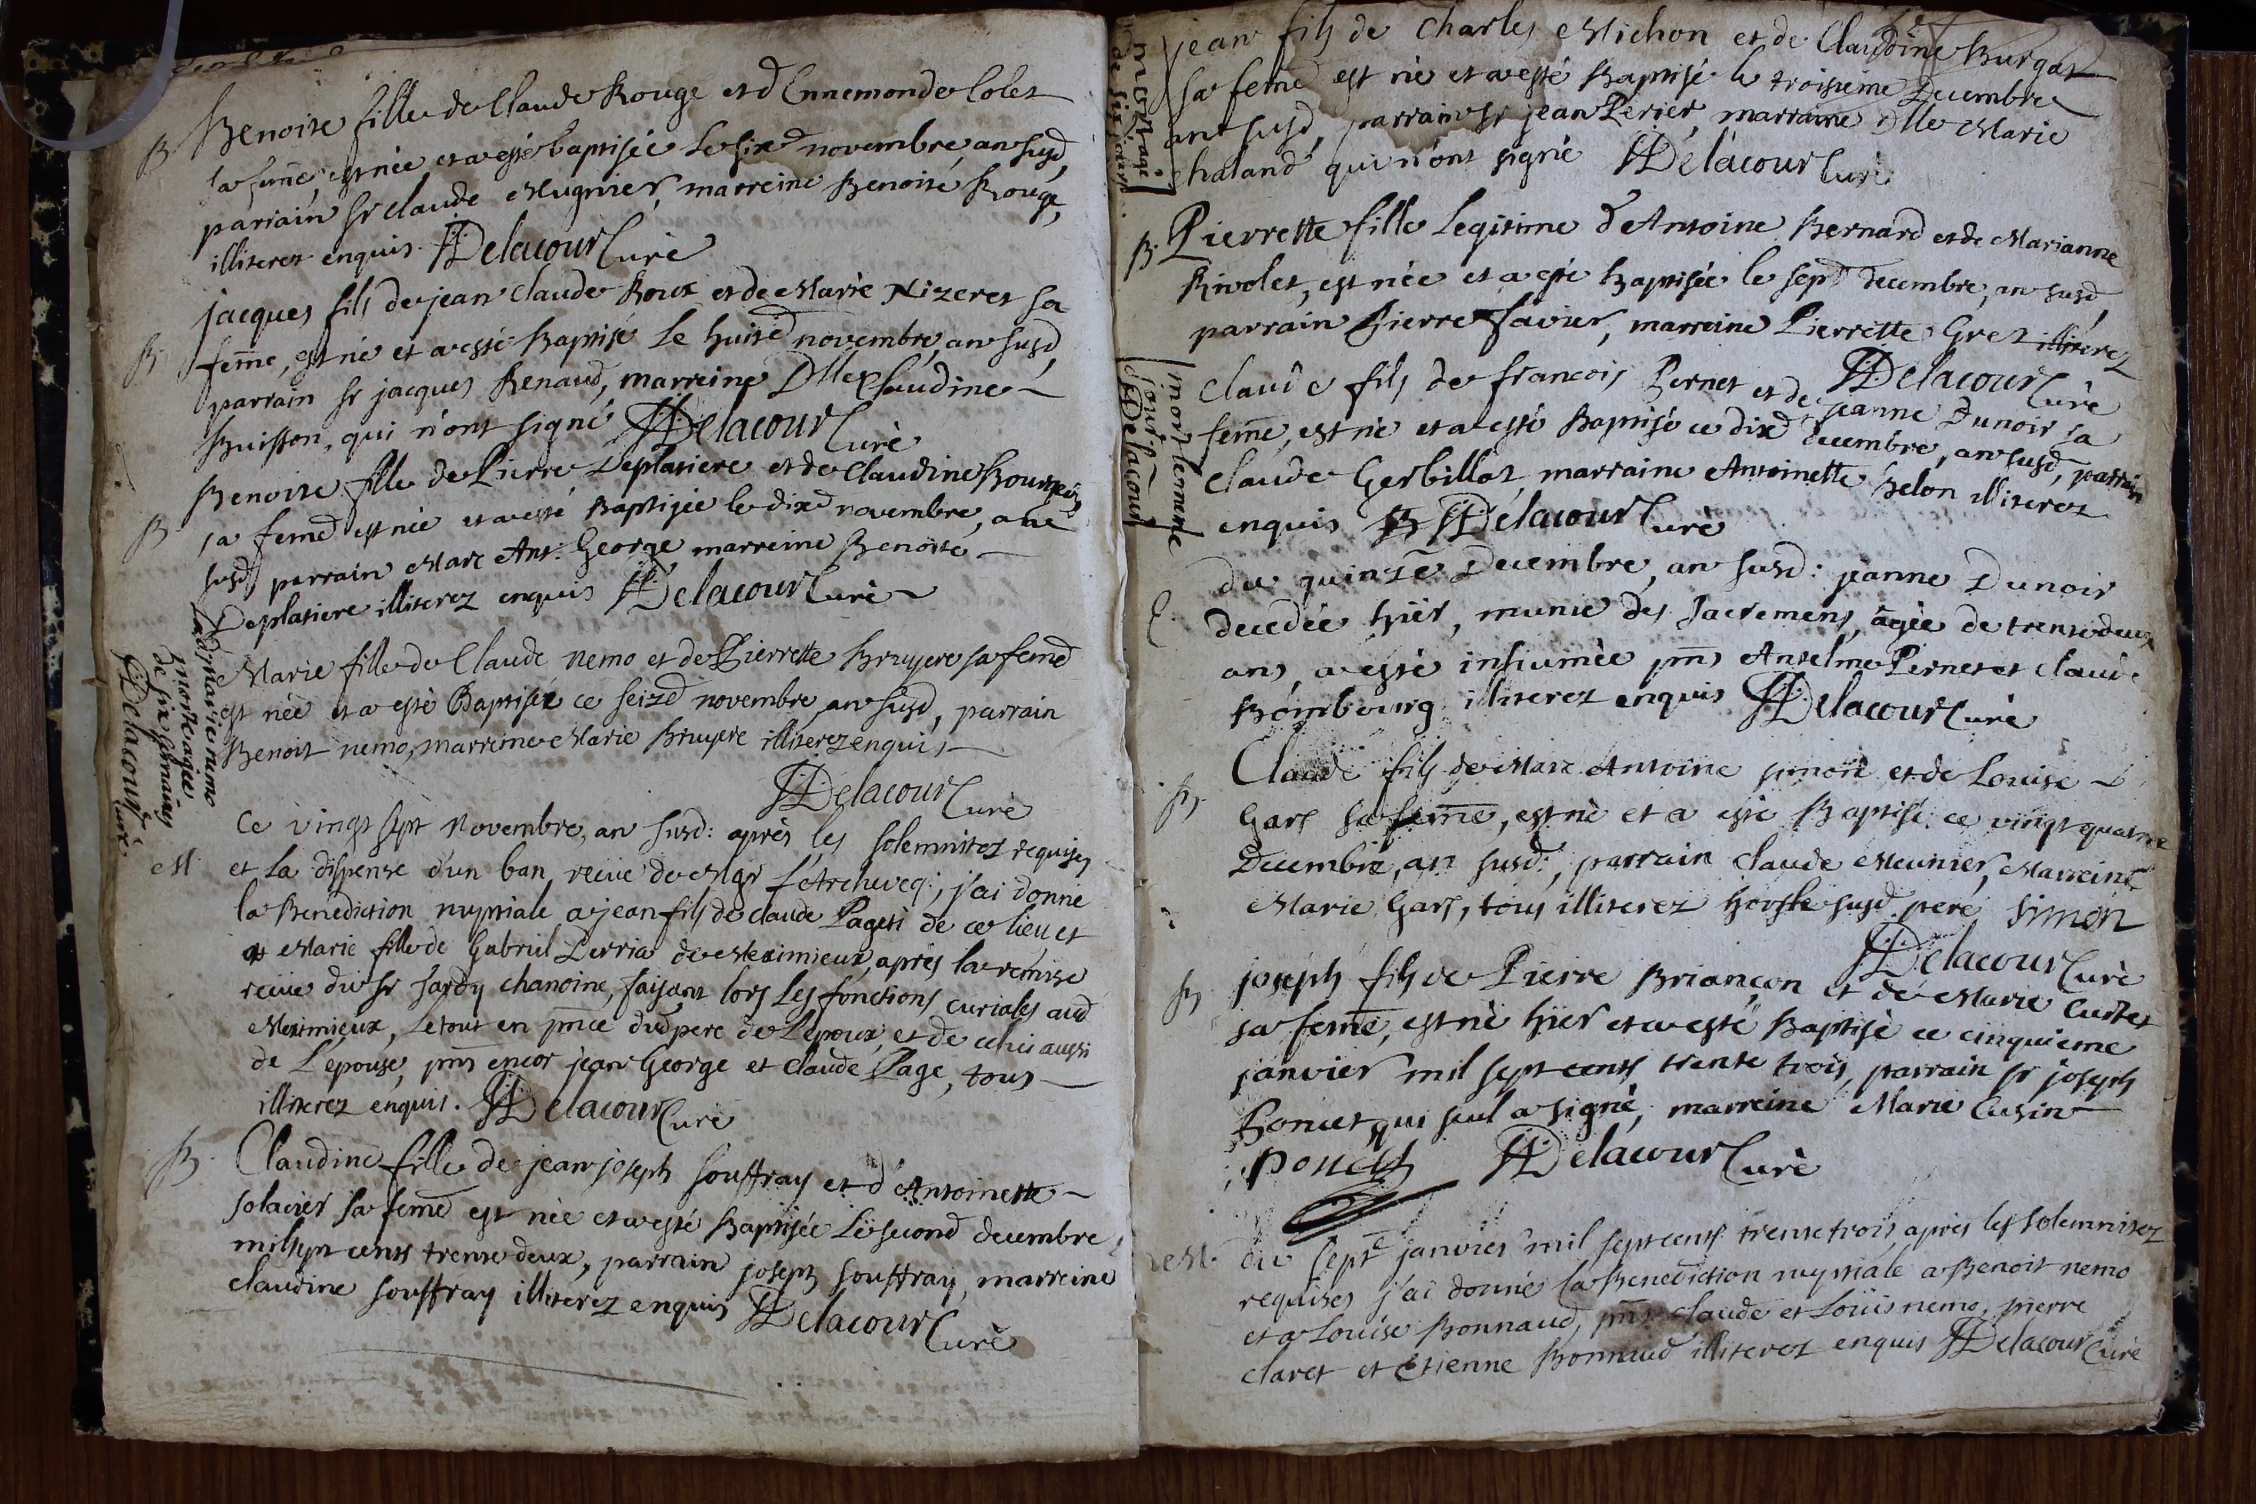 B
Benoite fille de Claude Rouge et d'Ennemonde Colet
sa feme, est née et a esté baptisée le sixe novembre, an susd,
parrain sr claude Mugnier, marreine Benoite Rouge,
illiterez enquis. Delacour Curé
B
jacques fils de jean claude Roux et de Marie Nizeret sa
feme, est né et a esté Baptisé le huite novembre, an susd,
parrain sr jacques Renaud, marreine Dlle Claudine
Buisson, qui n'ont signé Delacour Curé
B
Benoite fille de Pierre Deplatiere et de Claudine
sa feme est née et a esté Baptisée le dixe novembre, an
susd, parrain Marc Ant. George marreine Benoite
Deplatiere illiterez enquis Delacour Curé
lad Marie nemo
morte agée
de six semaines
Delacour Curé
Marie fille de Claude nemo et de Pierrette Bruyere sa feme
est née et a esté Baptisée ce seize novembre an susd, parrain
Benoit nemo, marreine Marie Bruyere illiterez enquis
Delacour Curé
M
Ce vingt sept Novembre, an susd: après les solemnitez requises
et la dispense d'un ban, reçue de Mgr L'Archeveq:, j'ai donné
la Benediction nuptiale a jean fils de claude Pageti de ce lieu et
a Marie fille de Gabriel Perria de Meximieux, après la remise
reçue du sr Jardy chanoine, faisant lors les fonctions curiales aud
Meximieux, le tout en pnce dud pere de l'epoux, et de celui aussi
de L'epouse, pns encor jean George et Claude Page, tous
illiterez enquis. Delacour Curé
B
Claudine fille de jean joseph souffray et d'Antoinette
solacier sa feme est née et a esté Baptisée le second decembre
mil sept cents trente deux, parrain joseph souffray, marreine
claudine souffray illiterez enquis Delacour Curé
mort agé
de six jours
jean fils de Charles Michon et de Claudine Burgat
sa feme est né et a esté Baptisé le troisieme Decembre
an susd, parrain sr jean Perier, marraine Dlle Marie
chaland qui n'ont signé Delacour Curé
B.
Pierrette fille legitime d'Antoine Bernard et de Marianne
Rivolet, est née et a esté Baptisée le sept decembre, an susd,
parrain Pierre Savier, marreine Pierrette Grez illiterez
Delacour Curé
mort le meme
jour
Delacour
Claude fils de francois Pernet et de jeanne Dunoir sa
feme, est né et a esté Baptisé ce dixe decembre, an susd, parrain
Claude Gerbillot, marraine Antoinette Belon illiterez
enquis Delacour Curé
du quinze Decembre, an susd: janne Dunoir
decedée hier, munie des sacremens, agée de trente deux
ans, a esté inhumée pns Anselme Pernet et Claude
Bombourg illiterez enquis Delacour Curé
B.
Claude fils de Marc Antoine simon et de Louise
Gars sa feme, est né et a esté Baptisé ce vingt quatre
Decembre, an susd:, parrain claude Meunier, Marreine
Marie Gars, tous illiterez hors le susd pere, simon
Delacour Curé
B
joseph fils de Pierre Briançon et de Marie Curtet
sa feme, est né hier et a esté Baptisé ce cinquieme
janvier mil sept cents trente trois, parrain sr joseph
Poncet qui seul a signé, marreine Marie Cusin
poncet Delacour Curé
M.
du sept janvier mil sept cents trente trois après les solemnitez
requises j'ai donné la Benediction nuptiale a Benoit nemo
et a Louise Bonnaud, pns claude et Loüis nemo, pierre
claret et Etienne Bonnaud illiterez enquis Delacour Curé